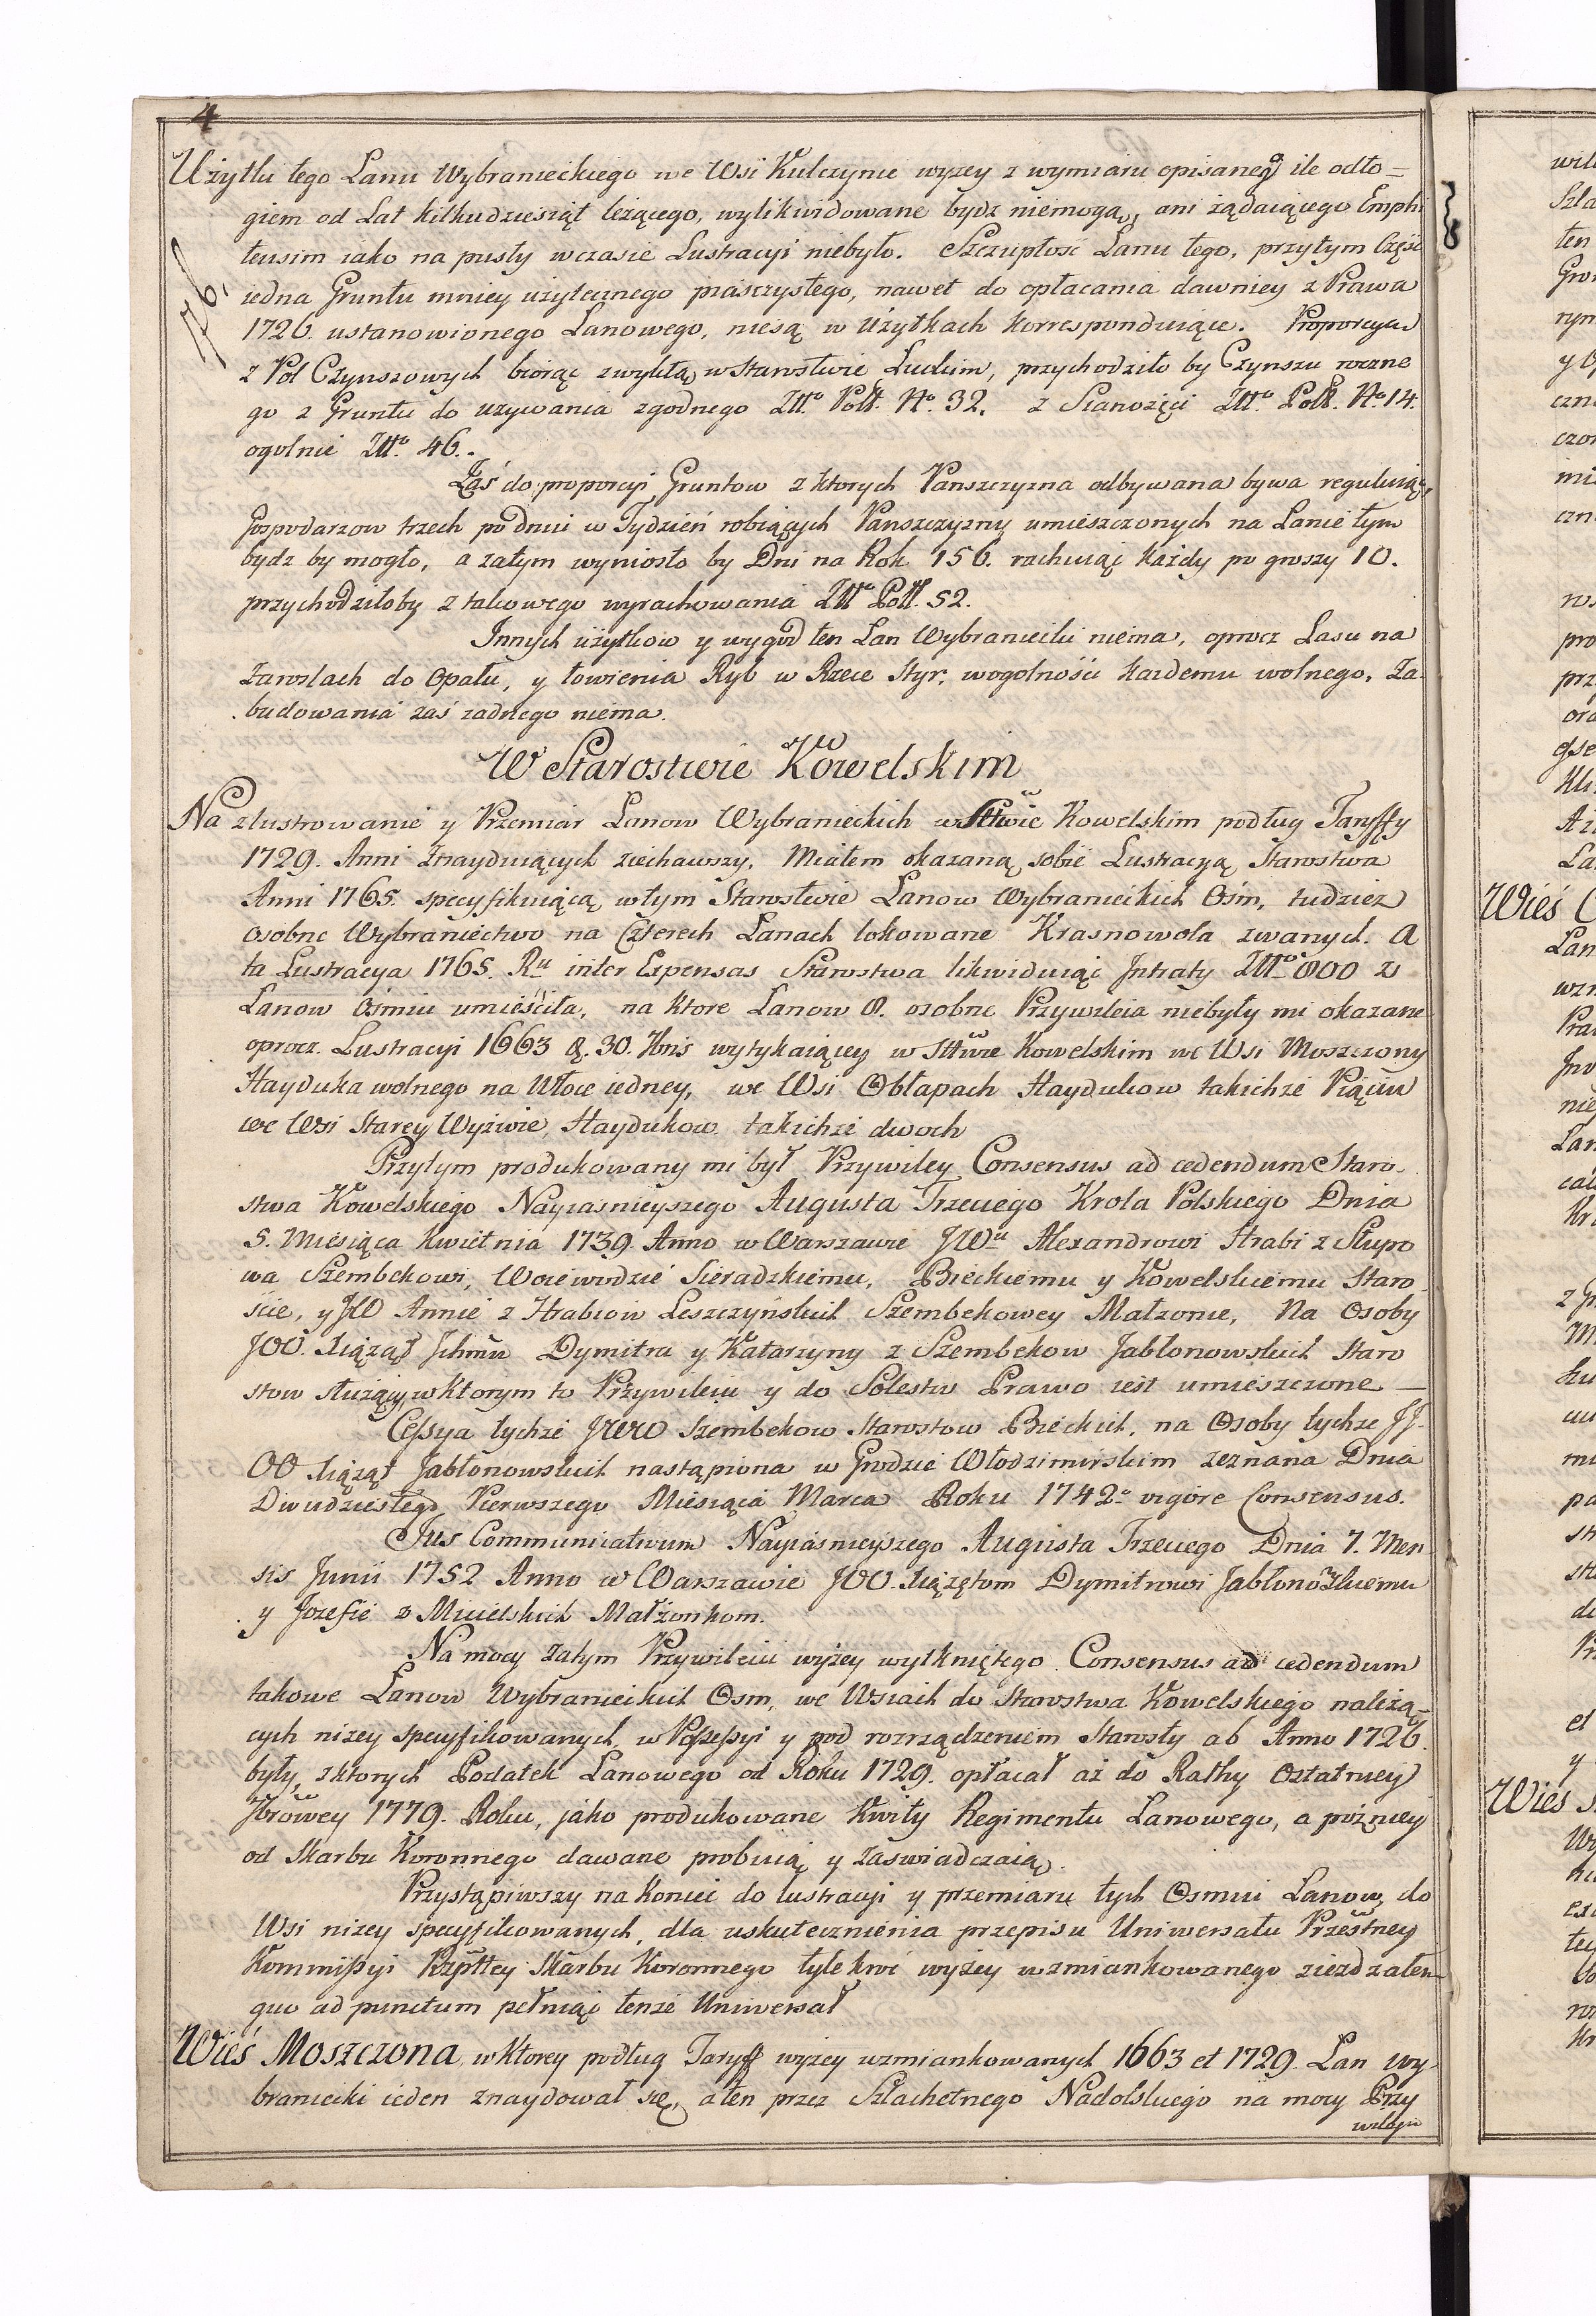 4
76
Użytki tego Lanu Wybranieckiego we Wsi Kulczynie wyzey z wymiaru opisanego ile odło=
giem od Lat kilkudziesiąt leżącego, wylikwidowane bydz niemogą, ani żądaiącego Emphi
teusim iako na pusty wczasie Lustracyi niebyło. Szczupłość Lanu tego, przytym Część
iedna Gruntu mniey użytecznego piasczystego, nawet do opłacania dawniey z Prawa
1726. ustanowionego Lanowego, niesą w Użytkach korrespondujące. Proporcyą
z Pol Czynszowych biorąc zwykłą w Starostwie Łuckim, przychodziło by Czynszu roczne
go z Gruntu do uzywania zgodnego Zlto. Poll. No. 32. z Sianozęci Zlto. Poll. No 14.
ogolnie Zlto. 46.
Zaś do proporcyi Gruntow z ktorych Panszczyzna odbywana bywa regulując,
Gospodarzow trzech po dniu w Tydzień robiących Panszczyzny umieszczonych na Lanie tym
bydz by mogło, a zatym wyniosło by Dni na Rok 156. rachując każdy po groszy 10.
przychodziłoby z takowego wyrachowania Zlto Poll. 52.
Innych użytkow y wygod ten Lan Wybraniecki niema, oprocz Lasu na
Zaroslach do Opału, y łowienia Ryb w Rzece Styr, wogolności kazdemu wolnego, Za
budowania zaś zadnego niema.
W Starostwie Kowelskim
Na zlustrowanie y Przemiar Lanow Wybranieckich w Sttwie Kowelskim podług Taryffy
1729. Anni Znayduiących ziechawszy, Miałem okazaną sobie Lustracyą Starostwa
Anni 1765. specyfikuiącą wtym Starostwie Lanow Wybranieckich Ośm, tudziez
osobne Wybraniectwo na Czterech Lanach lokowane Krasnowola zwanych. A
ta Lustracya 1765. Ru inter Expensas Starostwa likwiduiąc Jntraty Zllo 800 z
Lanow Ośmiu umieściła, na ktore Lanow 8. osobne Przywileia niebyły mi okazane
oprocz Lustracyi 1663 8. 30. Xbris wytykaiącey w Sttwie Kowelskim we Wsi Moszczony
Hayduka wolnego na Włoce iedney, we Wsi Obłapach Haydukow takichże Pięciu
we Wsi Starey Wyżwie, Haydukow takichże dwoch
Przytym produkowany mi był Przywiley Consensus ad cedendum Staro
stwa Kowelskiego Nayiasnieyszego Augusta Trzeciego Krola Polskiego Dnia
5. Miesiąca Kwietnia 1739. Anno w Warszawie JWu Alexandrowi Hrabi z Słupo
wa Szembekowi, Woiewodzie Sieradzkiemu, Bieckiemu y Kowelskiemu Staro
scie, y JW Annie z Hrabiow Leszczyńskich Szembekowey Małzonce, Na Osoby
JOO. Xiążąt Jchmw Dymitra y Katarzyny z Szembekow Jabłonowskich Staro
stow służący, wktorym to Przywileiu y do Sołestw Prawo iest umieszczone —
Cessya tychże JWW Szembekow Starostow Bieckich, na Osoby tychze JJ.
OO Xiążąt Jabłonowskich nastąpiona w Grodzie Włodzimirskim zeznana Dnia
Dwudziestego Pierwszego Miesiąca Marca Roku 1742o vigore Consensus.
Jus Communicativum Nayiasnieyszego Augusta Trzeciego Dnia 7. Men
sis Junii 1752 Anno w Warszawie JOO. Xiążętom Dymitrowi Jabłonowskiemu
y Jozefie z Micielskich Małżonkom.
Na mocy zatym Przywileiu wyżey wytkniętego Consensus ad cedendum
takowe Lanow Wybranieckich Osm, we Wsiach do Starostwa Kowelskiego należą=
cych nizey specyfikowanych, w Possessyi y pod rozrządzeniem Starosty ab Anno 1726.
były, zktorych Podatek Lanowego od Roku 1729. opłacał aż do Ratty Ostatniey
7browey 1779. Roku, jako produkowane Kwity Regimentu Lanowego, a pozniey
od Skarbu Koronnego dawane probuią y zaswiadczaią.
Przystąpiwszy na koniec do lustracyi y przemiaru tych Osmiu Lanow, do
Wsi nizey specyfikowanych, dla uskutecznienia przepisu Uniwersału Przestney
Kommissyi Rzptey Skarbu Koronnego tylekroć wyżey wzmiankowanego ziezdzałem
quo ad punctum pełniąc tenże Uniwersał
Wieś Moszczona, wktorey podług Taryff wyzey wzmiankowanych 1663 et 1729. Lan wy
braniecki ieden znaydował się, aten przez Szlachetnego Nadolskiego na mocy Przy
wileju